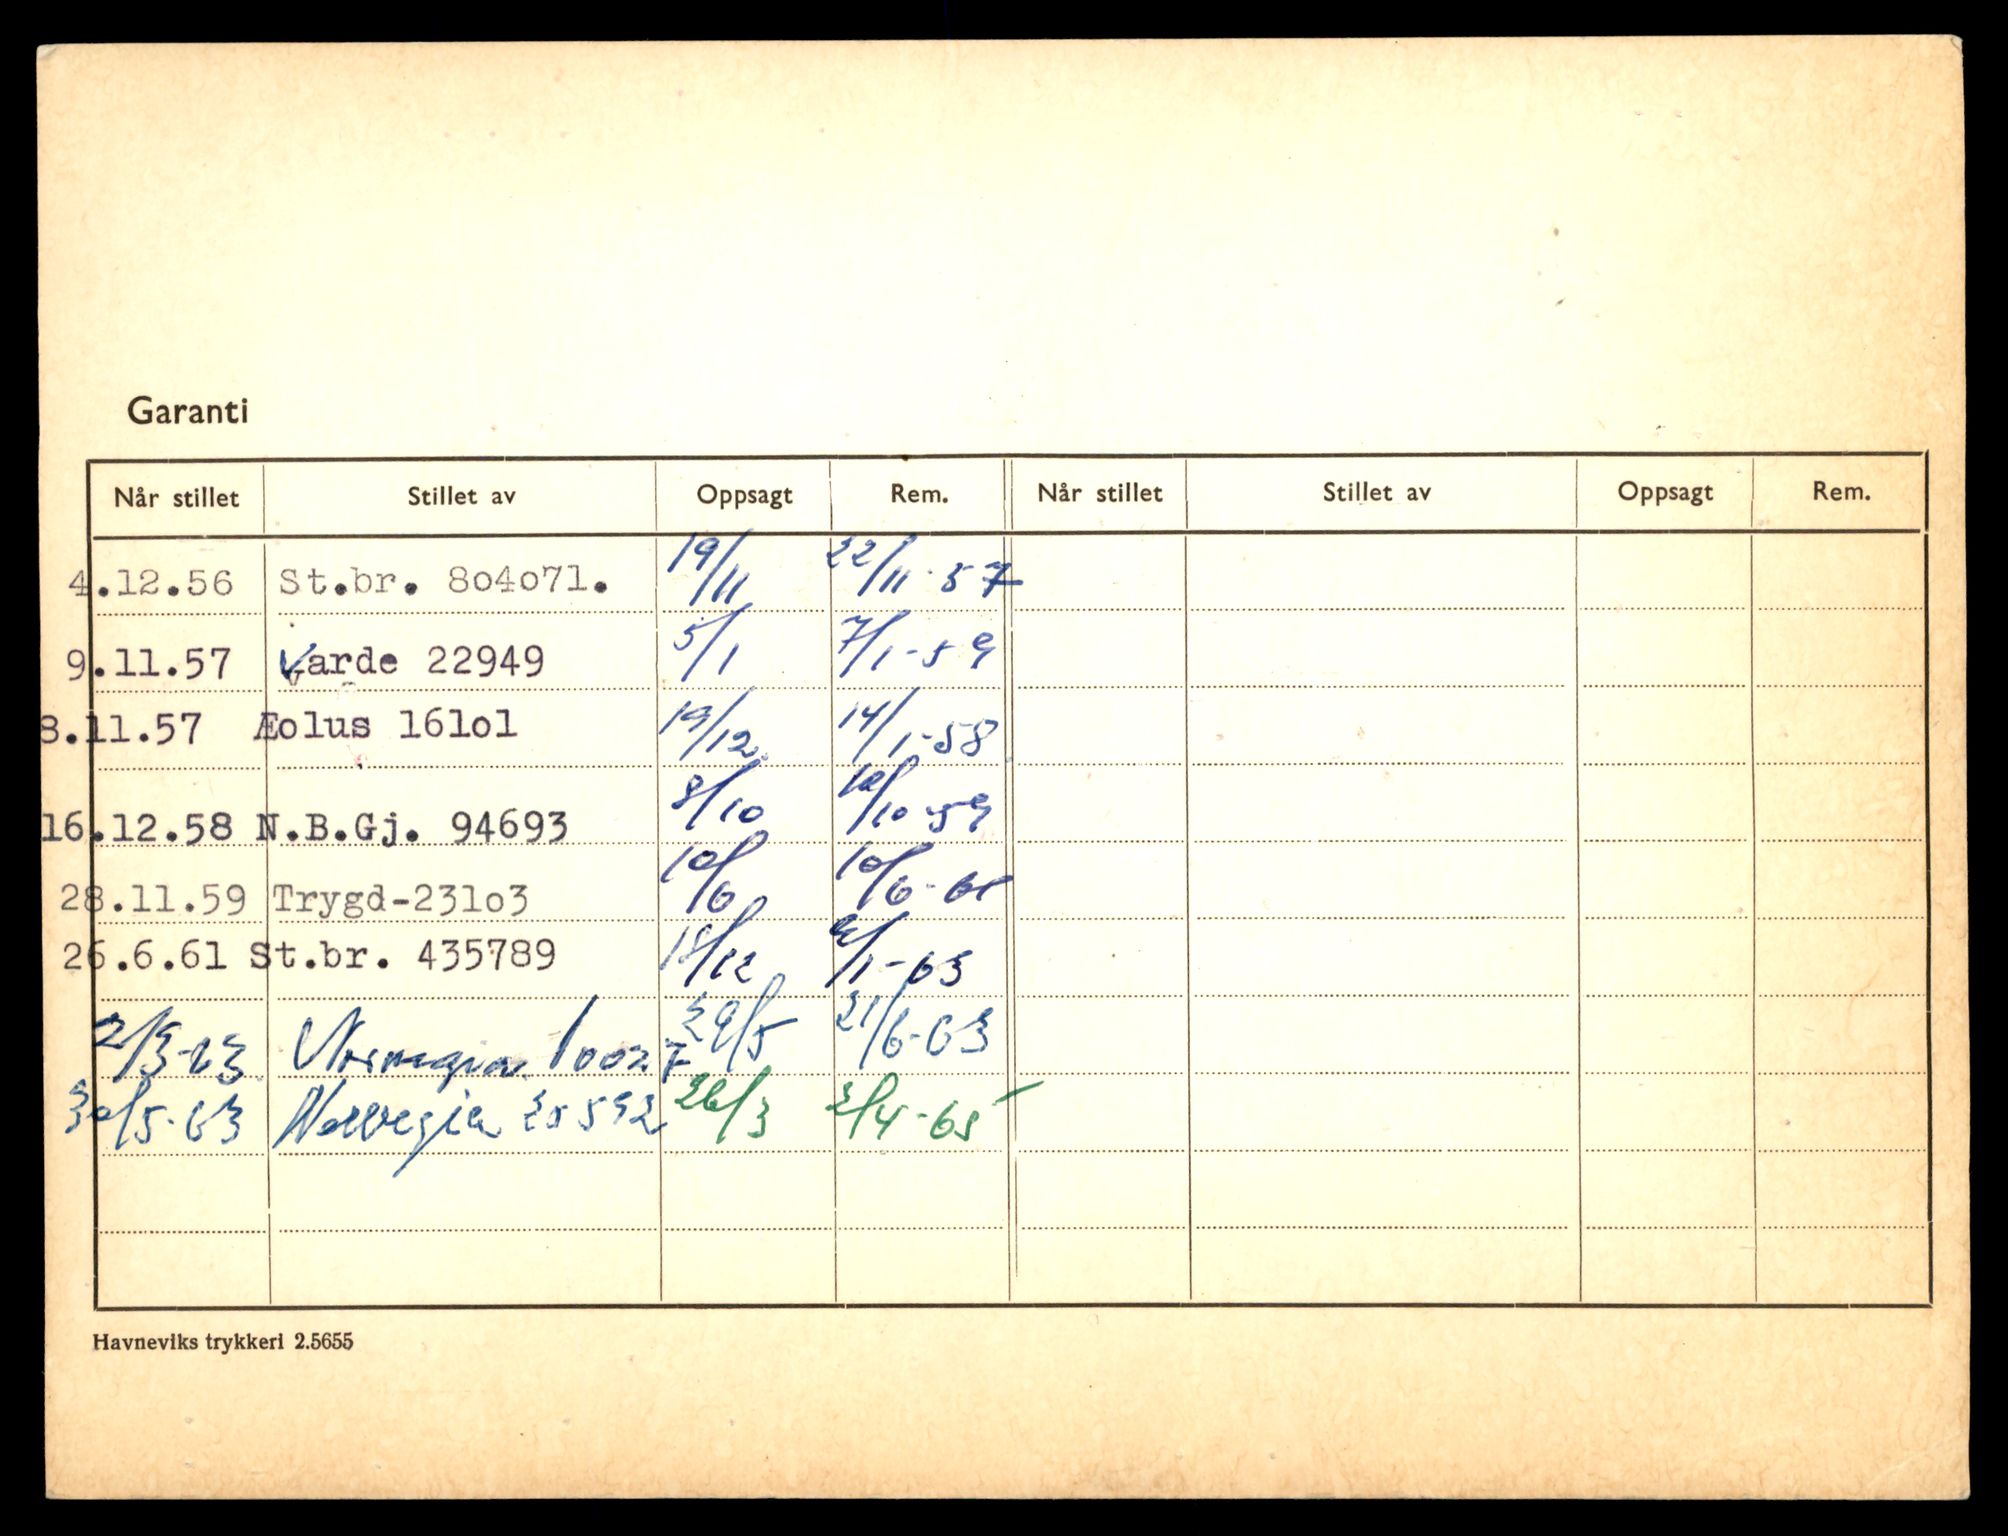 Garanti
Når stillet Stillet av Oppsagt Rem. Når stillet Stillet av Oppsagt Rem.
4.12.56 St.br. 804071. 19/11 22/11-57
9.11.57 Varde 22949 5/1 7/1-59
8.11.57 Æolus 16101 19/12 14/1-58
16.12.58 N.B.Gj. 94693 8/10 10/10-59
28.11.59 Trygd-23103 10/6 10/6-61
26.6.61 St.br. 435789 18/12 /1-63
2/3-63 Norwegian 10027 29/5 21/6-63
30/5-63 Norvegia 26/3 2/4-65
Havneviks trykkeri 2.5655